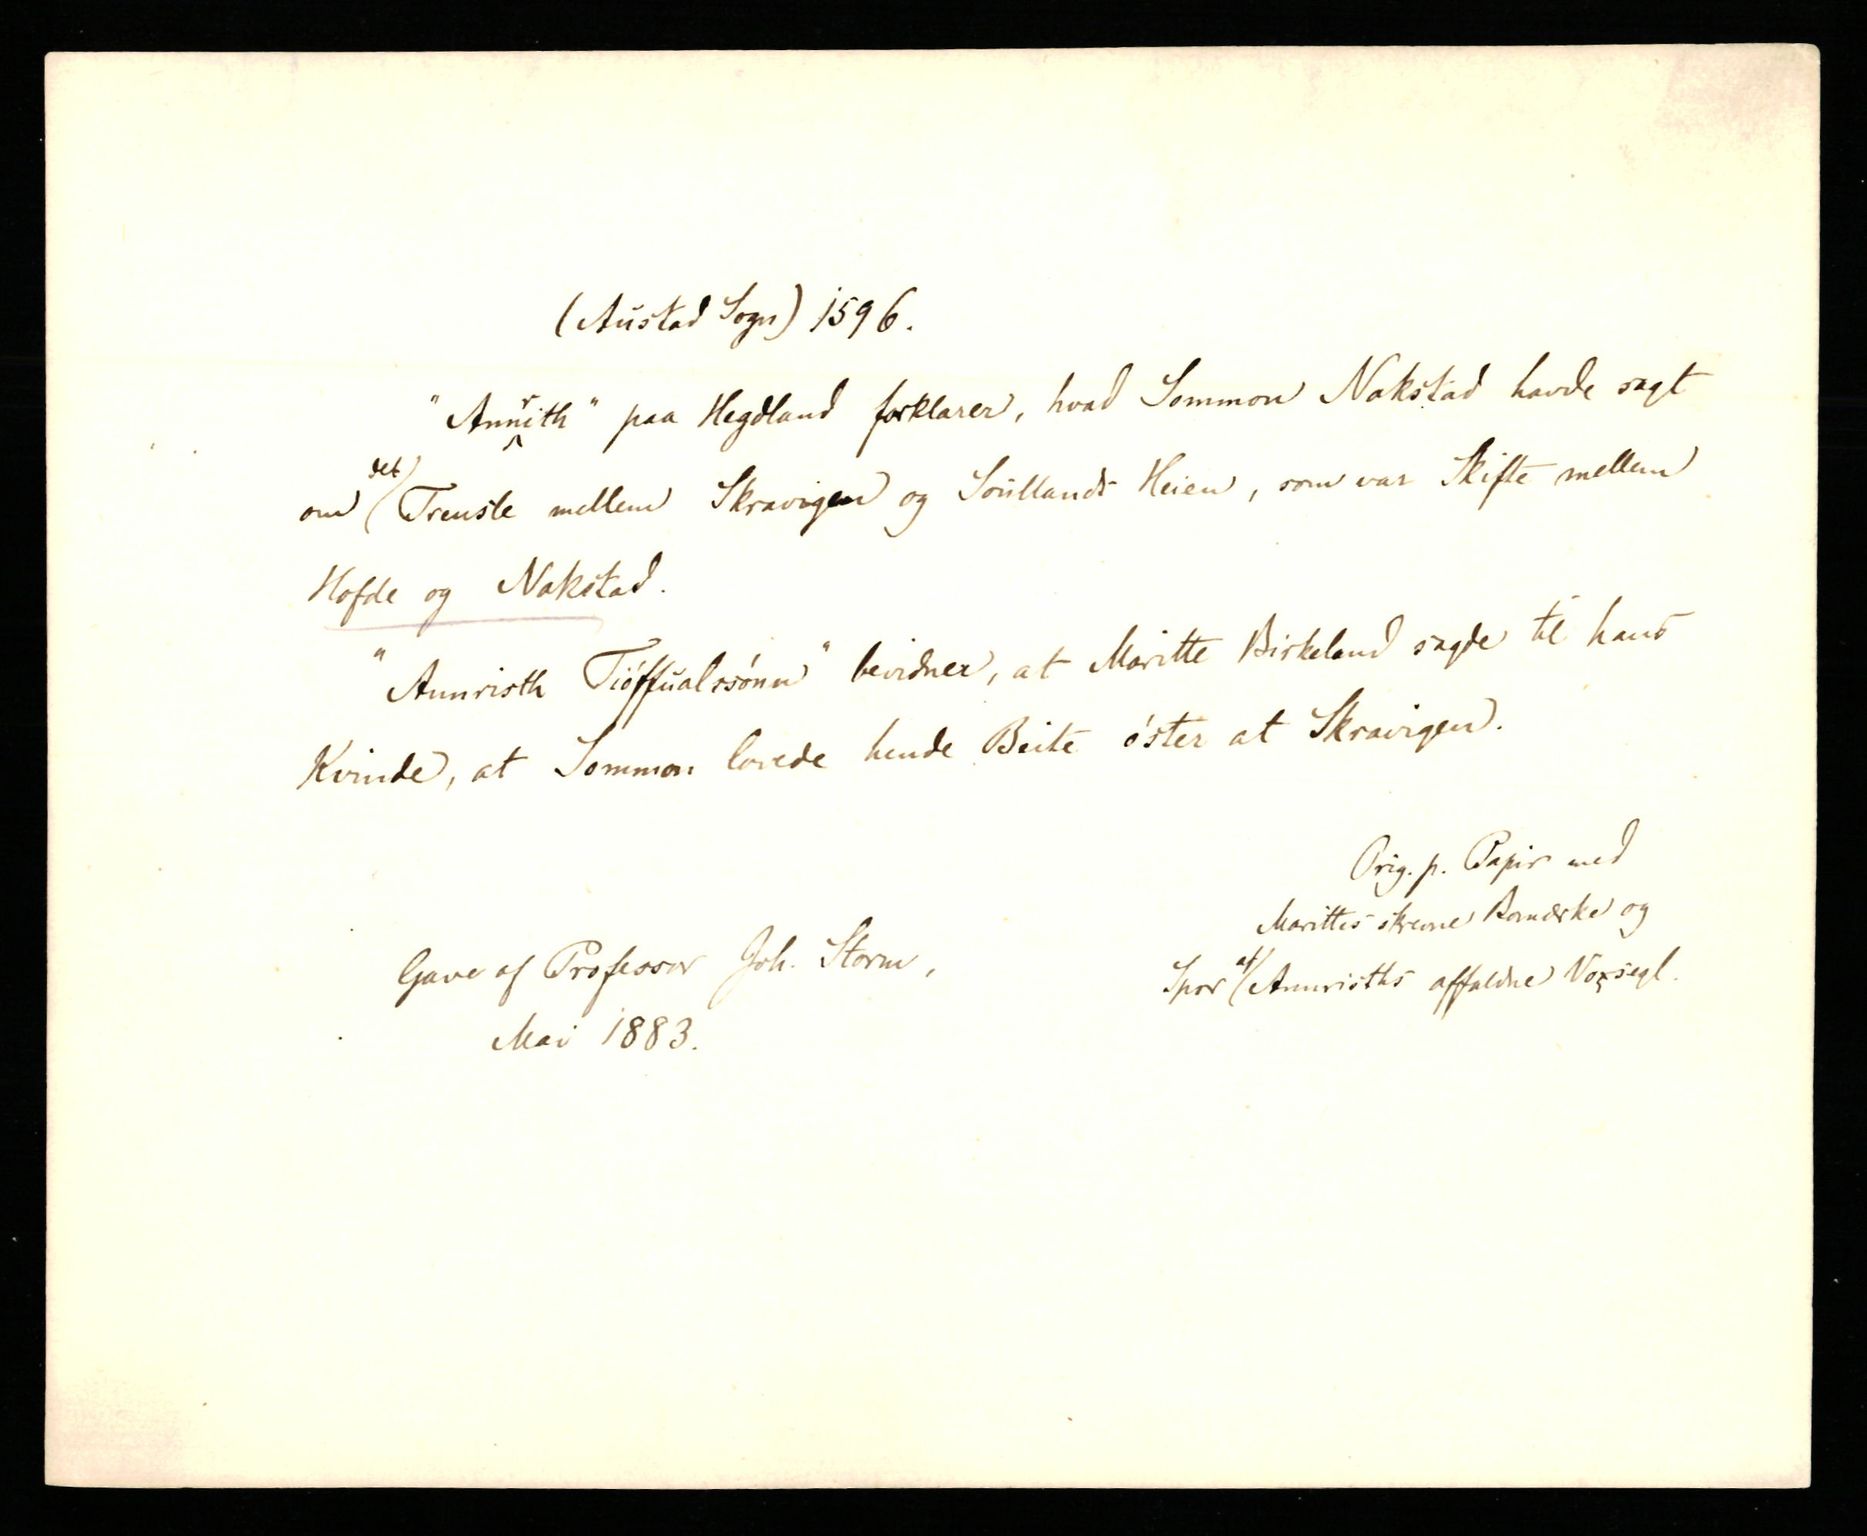 (Austad Sogn) 1596.
"Annrith" paa Hegdland forklarer, hvad Sommon Nakstad havde sagt
om det Treuste mellem Skravigen og Soullands Heien, som var Skifte mellem
Hofde og Nakstad.
"Annristh Tióffualssónn" bevidner, at Maritte Birkeland sagde til hans
Kvinde, at Sommon lovede hende Beite óster at Skravigen.
Orig. p. Papir med
Marittes skrevne Bomærke og
Spor af Annrisths affaldne Voxsegl.
Gave af Professor Joh. Storm,
Mai 1883.